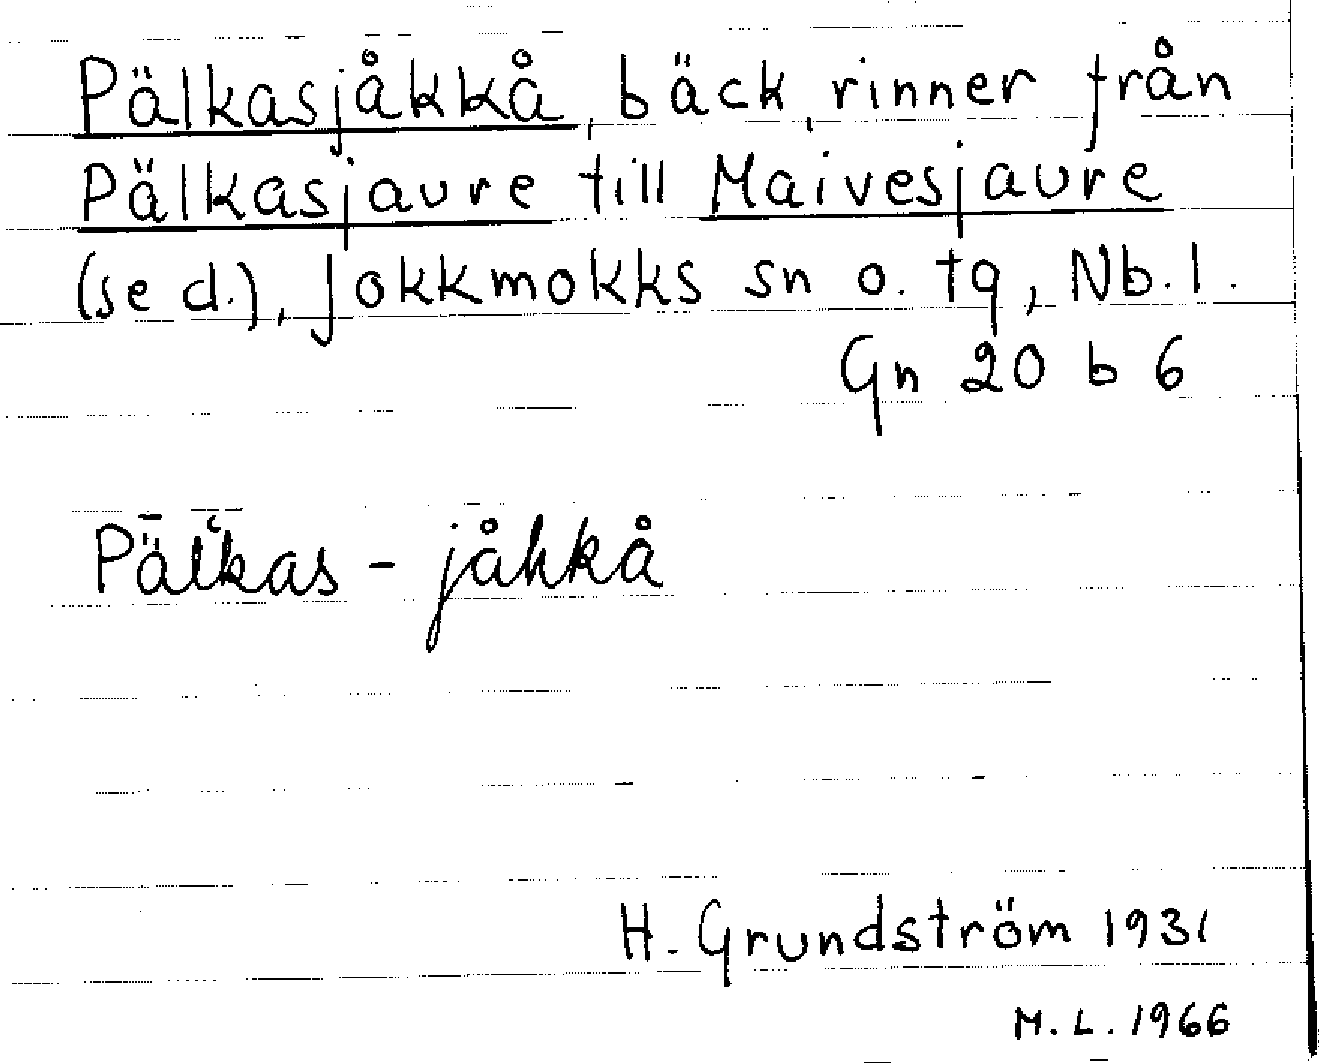 Pälkasjåkkå, bäck, rinner från
Pälkasjaure till Maivesjaure
(se d.), Jokkmokks sn o. tg, Nb.l.
Gn 20 b 6
Pǟl‘kas - jåhkå
H. Grundström 1931
M.L. 1966